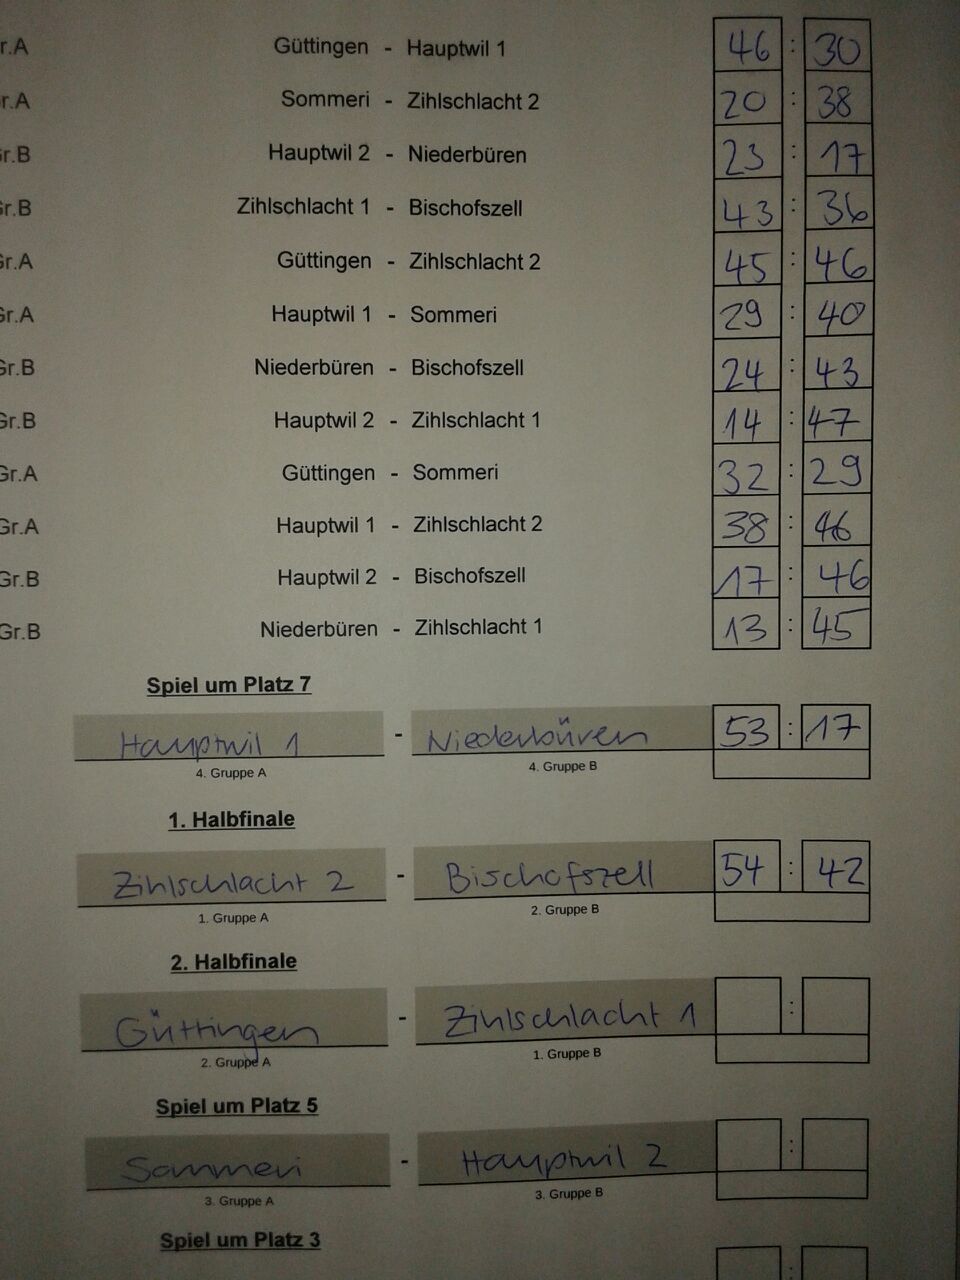 r.A Güttingen - Hauptwil 1 46 : 30
r.A Sommeri - Zihlschlacht 2 20 : 38
Gr.B Hauptwil 2 - Niederbüren 23 : 17
Gr.B Zihlschlacht 1 - Bischofszell 43 : 36
Gr.A Güttingen - Zihlschlacht 2 45 : 46
Gr.A Hauptwil 1 - Sommeri 29 : 40
Gr.B Niederbüren - Bischofszell 24 : 43
Gr.B Hauptwil 2 - Zihlschlacht 1 14 : 47
Gr.A Güttingen - Sommeri 32 : 29
Gr.A Hauptwil 1 - Zihlschlacht 2 38 : 46
Gr.B Hauptwil 2 - Bischofszell 17 : 46
Gr.B Niederbüren - Zihlschlacht 1 13 : 45
Spiel um Platz 7
Hauptwil 1 - Niederbüren 53 : 17
4. Gruppe A 4. Gruppe B
1. Halbfinale
Zihlschlacht 2 - Bischofszell 54 : 42
1. Gruppe A 2. Gruppe B
2. Halbfinale
Güttingen - Zihlschlacht 1 :
2. Gruppe A 1. Gruppe B
Spiel um Platz 5
Sommeri - Hauptwil 2 :
3. Gruppe A 3. Gruppe B
Spiel um Platz 3